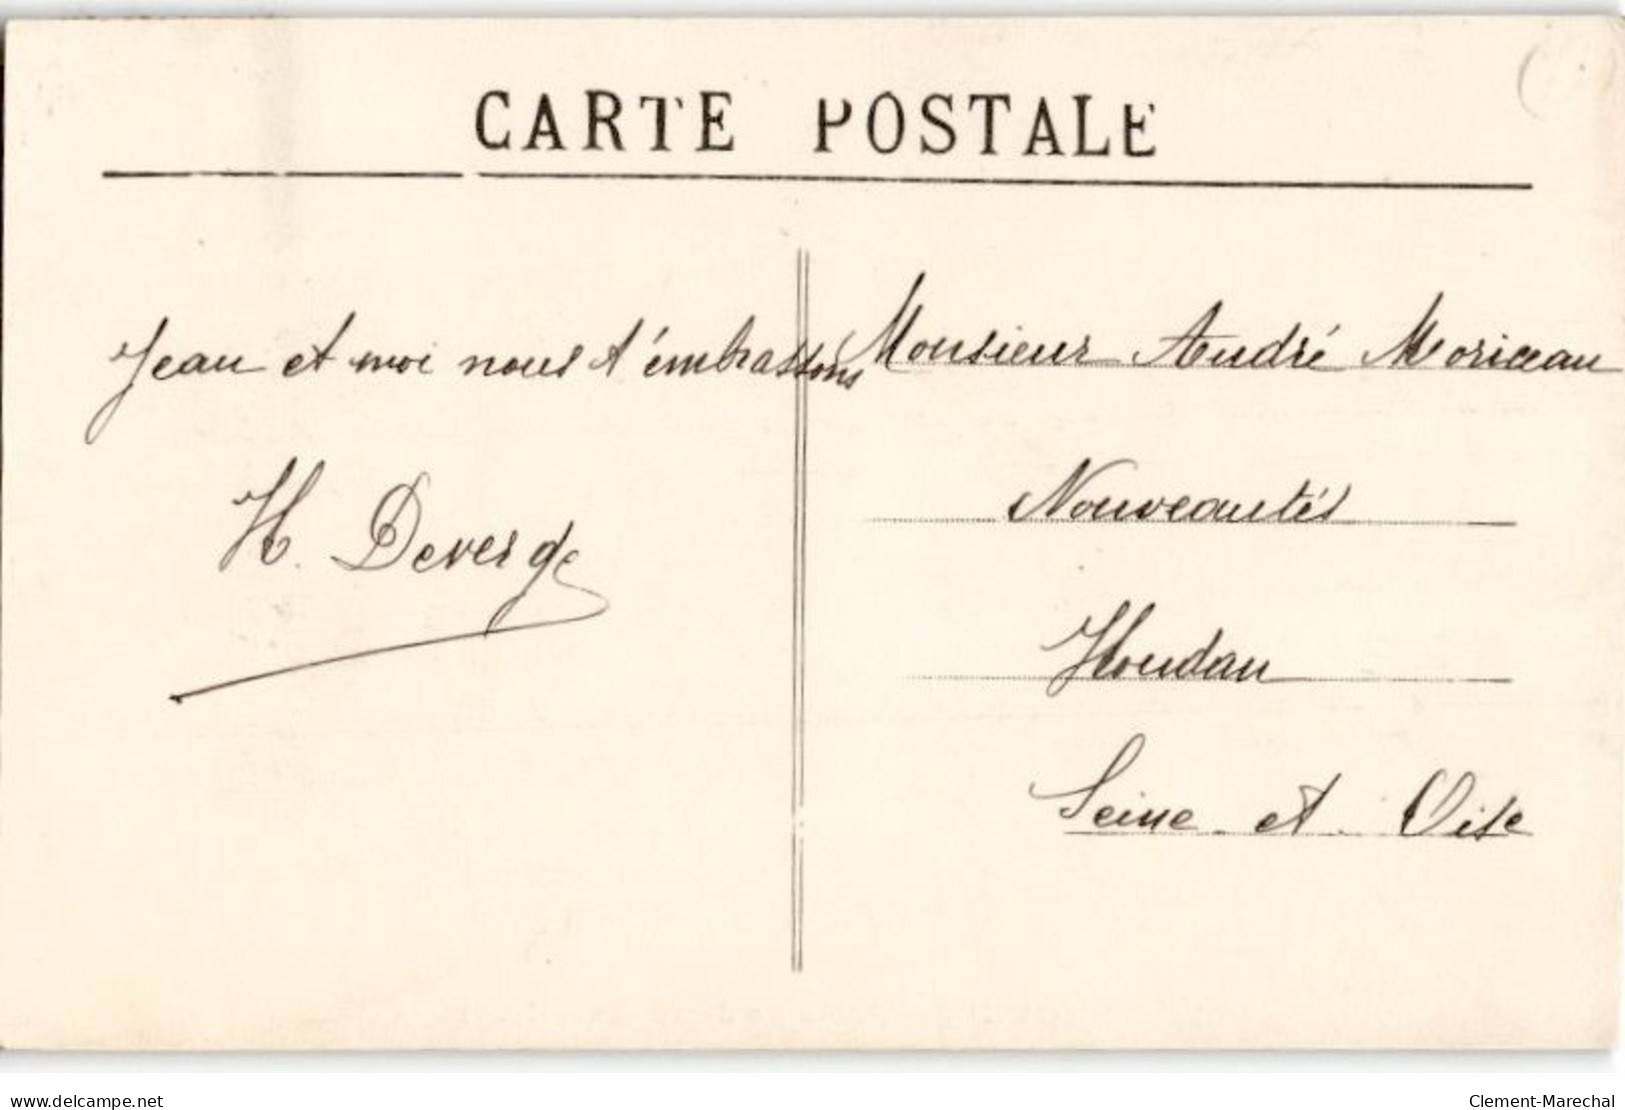 CARTE POSTALE
Jean et moi nous t'embrassons
H. Deverge
Monsieur André Moriceau
Nouveautés
Houdan
Seine et Oise
delcampe.net
Clement-Marechal